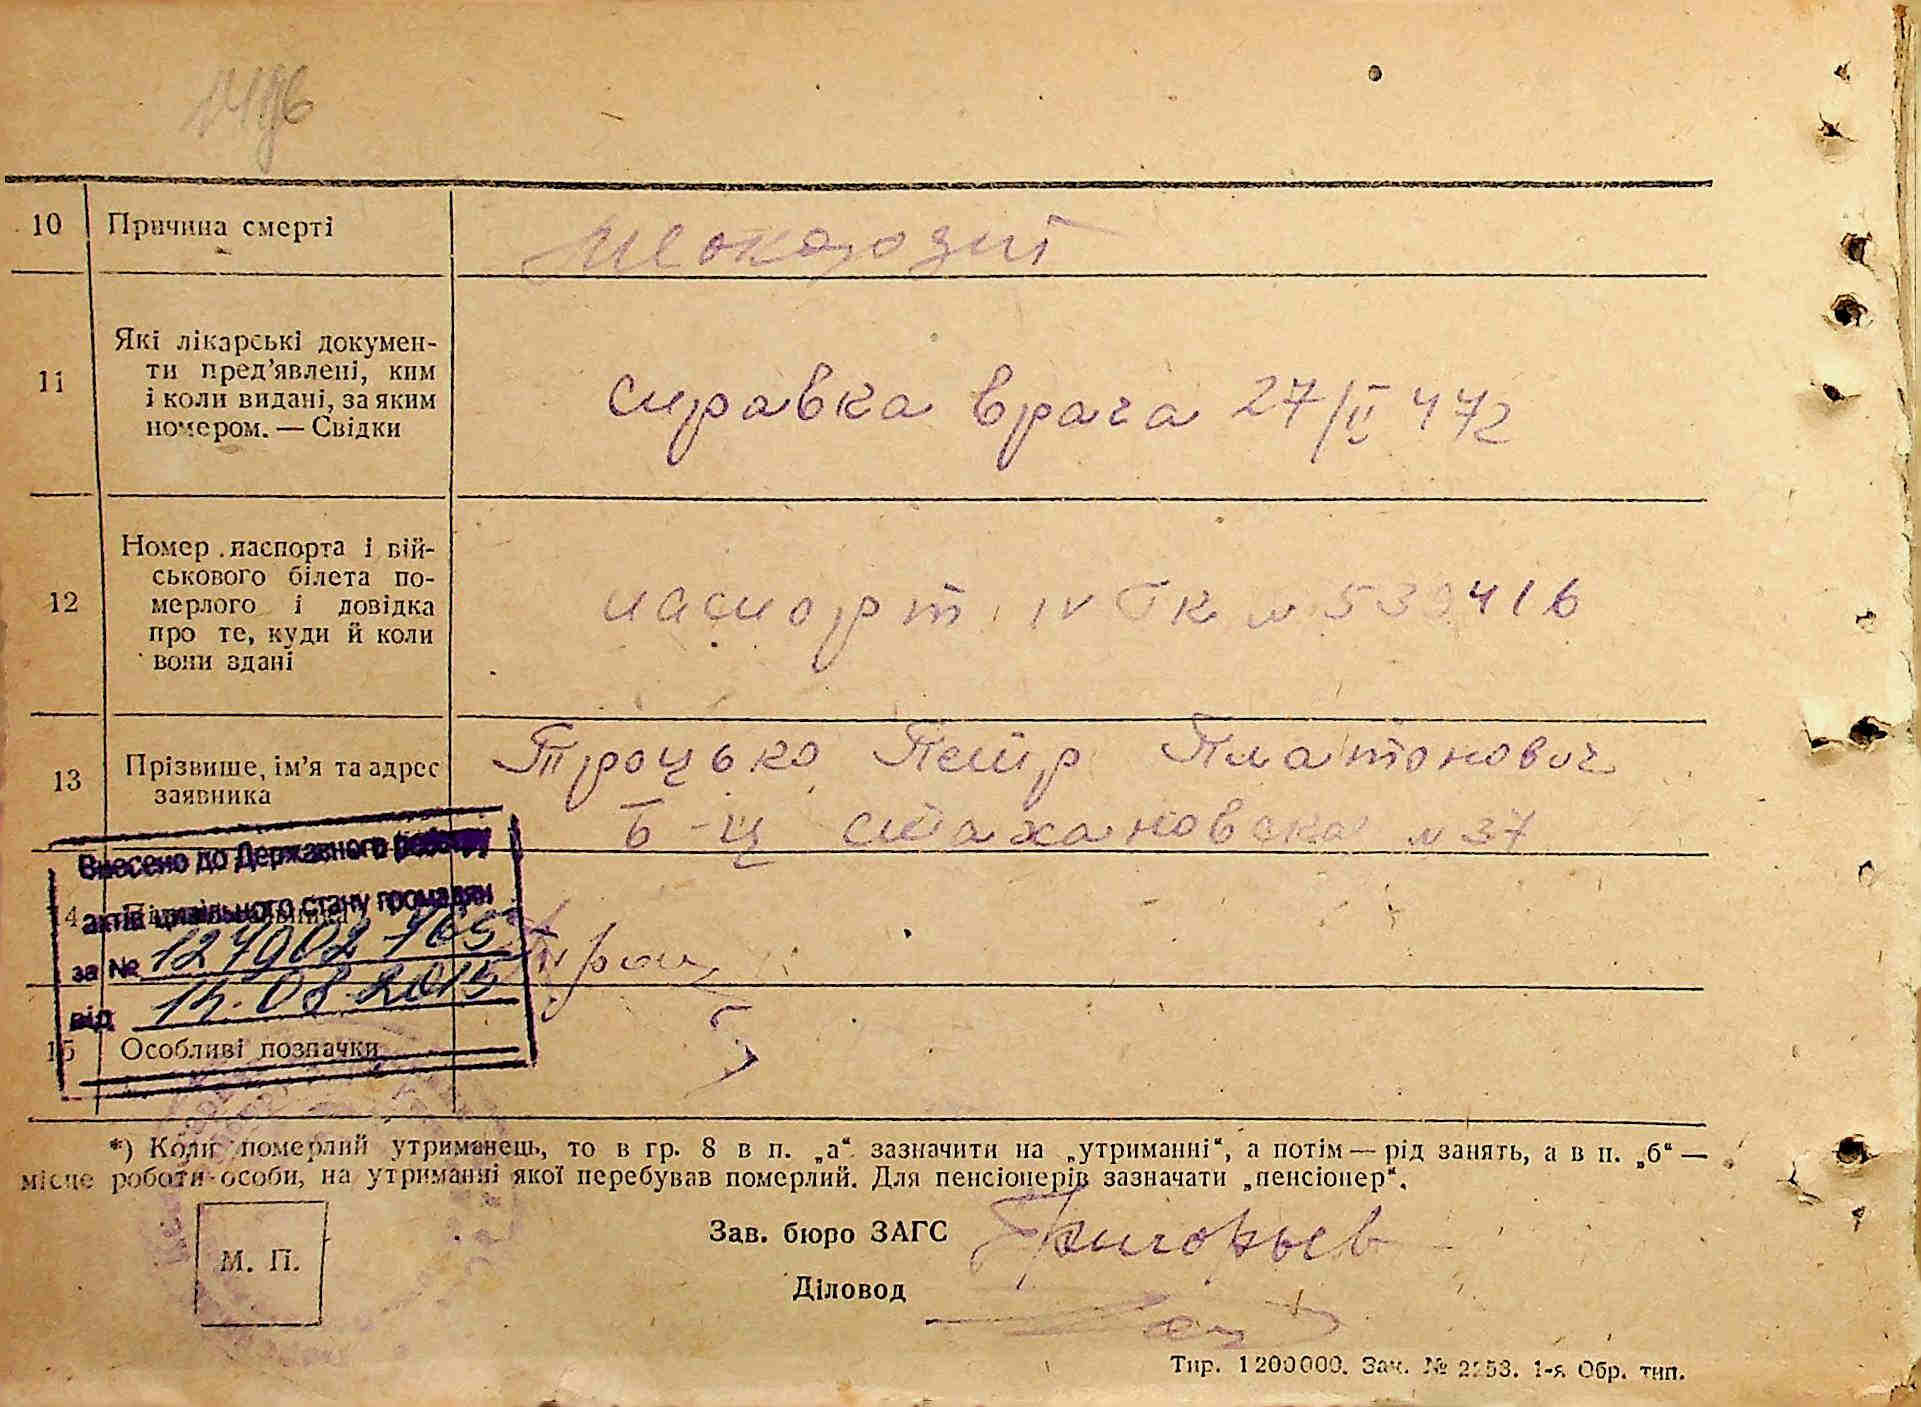 10 Причина смерті
11 Які лікарські докумен-
ти пред’явлені, ким
і коли видані, за яким
номером. — Свідки
справка врача 27/II 472
12 Номер паспорта і вій-
ськового білета по-
мерлого і довідка
про те, куди й коли
вони здані
паспорт IV № 416
13 Прізвише, ім’я та адрес
заявника
Троцько Петр Платонович
Б-Ц стахановска № 37
Внесено до Державного реєстру
актів цивільного стану громадян
за №
від 08.2015
14
15 Особливі позначки
*) Коли померлий утриманець, то в гр. 8 в п. „а“ зазначити на „утриманні“, а потім — рід занять, а в п. „б“ —
місце роботи особи, на утриманні якої перебував померлий. Для пенсіонерів зазначати „пенсіонер“.
М. П.
Зав. бюро ЗАГС Григорьев
Діловод
Тир. 1200000. Зак. № 2253. 1-я Обр. тип.